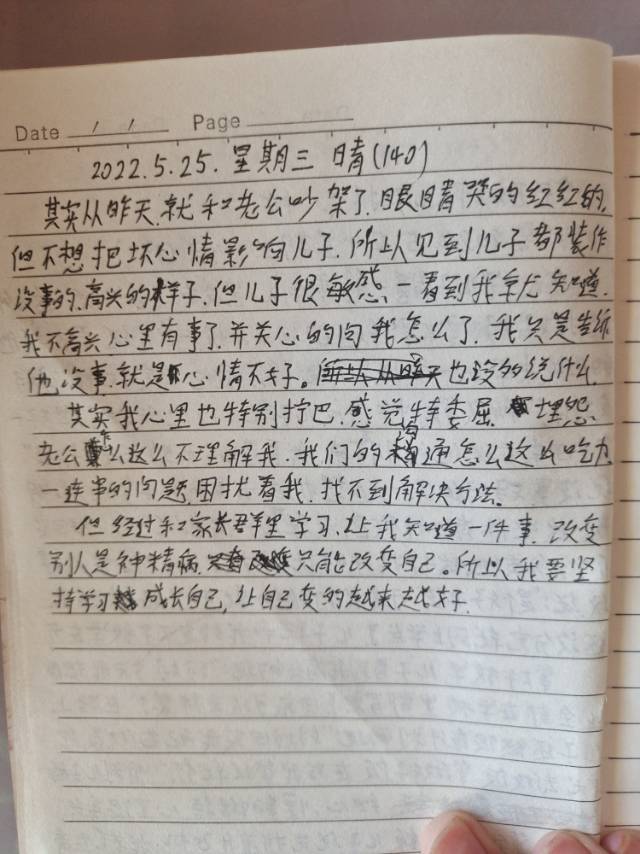 Date / / Page
2022.5.25. 星期三 晴(140)
其实从昨天.就和老公吵架了.眼睛哭的红红的,
但不想把坏心情影响儿子.所以见到儿子都装作
没事的.高兴的样子.但儿子很敏感.一看到我就知道.
我不高兴心里有事了.并关心的问我怎么了.我只是告诉
他没事.就是心情不好。也没的说什么.
其实我心里也特别拧巴.感觉特委屈.埋怨
老公怎么这么不理解我.我们的沟通怎么这么吃力
一连串的问题.困扰着我.找不到解决方法.
但经过和家长群里学习.让我知道一件事.改变
别人是神精病.只能改变自己。所以我要坚
持学习成长自己,让自己变的越来越好.